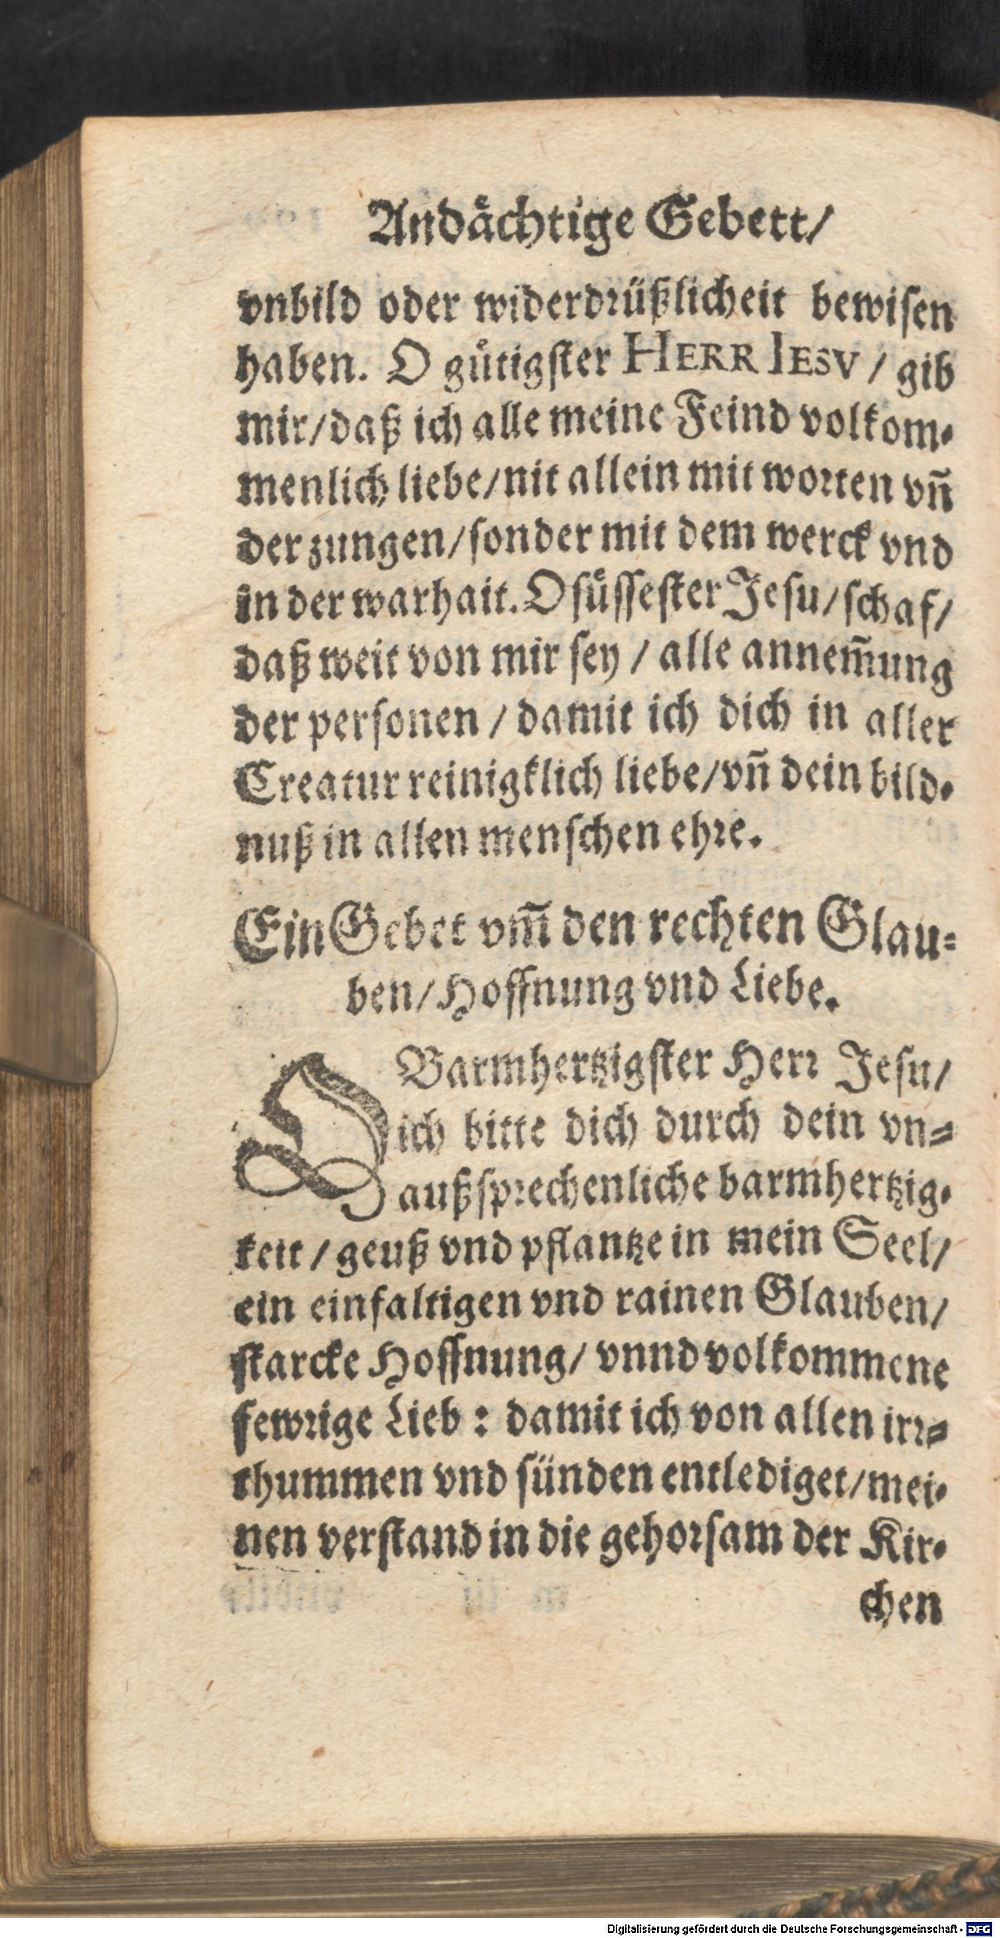 Andächtige Gebett/
vnbild oder widerdrüßlicheit bewisen
haben. O gütigster HERR IESV / gib
mir/daß ich alle meine Feind volkom-
menlich liebe/nit allein mit worten vñ
der zungen/sonder mit dem werck vnd
in der warhait. O süssester Jesu/schaf/
daß weit von mir sey / alle annem̃ung
der personen / damit ich dich in aller
Creatur reinigklich liebe/vñ dein bild-
nuß in allen menschen ehre.
Ein Gebet vm̃ den rechten Glau-
ben/Hoffnung vnd Liebe.
O Barmhertzigster Herr Jesu/
ich bitte dich durch dein vn-
außsprechenliche barmhertzig-
keit / geuß vnd pflantze in mein Seel/
ein einfaltigen vnd rainen Glauben/
starcke Hoffnung/ vnnd volkommene
fewrige Lieb : damit ich von allen irr-
thummen vnd sünden entlediget/mei-
nen verstand in die gehorsam der Kir-
chen
Digitalisierung gefördert durch die Deutsche Forschungsgemeinschaft - DFG